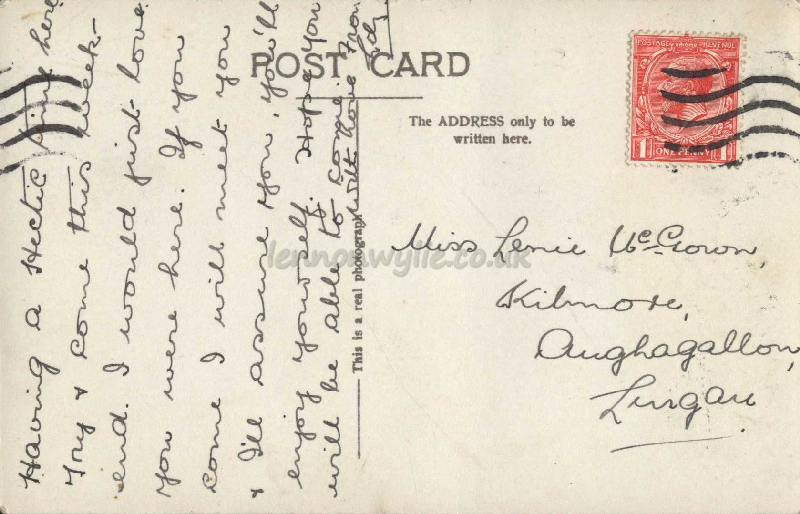 POST CARD
The ADDRESS only to be
written here.
POSTAGE REVENUE
1 ONE PENNY 1
Having a Hectic time here
Try & come this week-
end. I would just love
you were here. If you
come I will meet you
& I'll assure you, you'll
enjoy yourself. Hope you
will be able to come
With love from
This is a real photograph
Miss Lenie McGrown,
Kilmore,
Aughagallon,
Lurgan
lennonwylie.co.uk